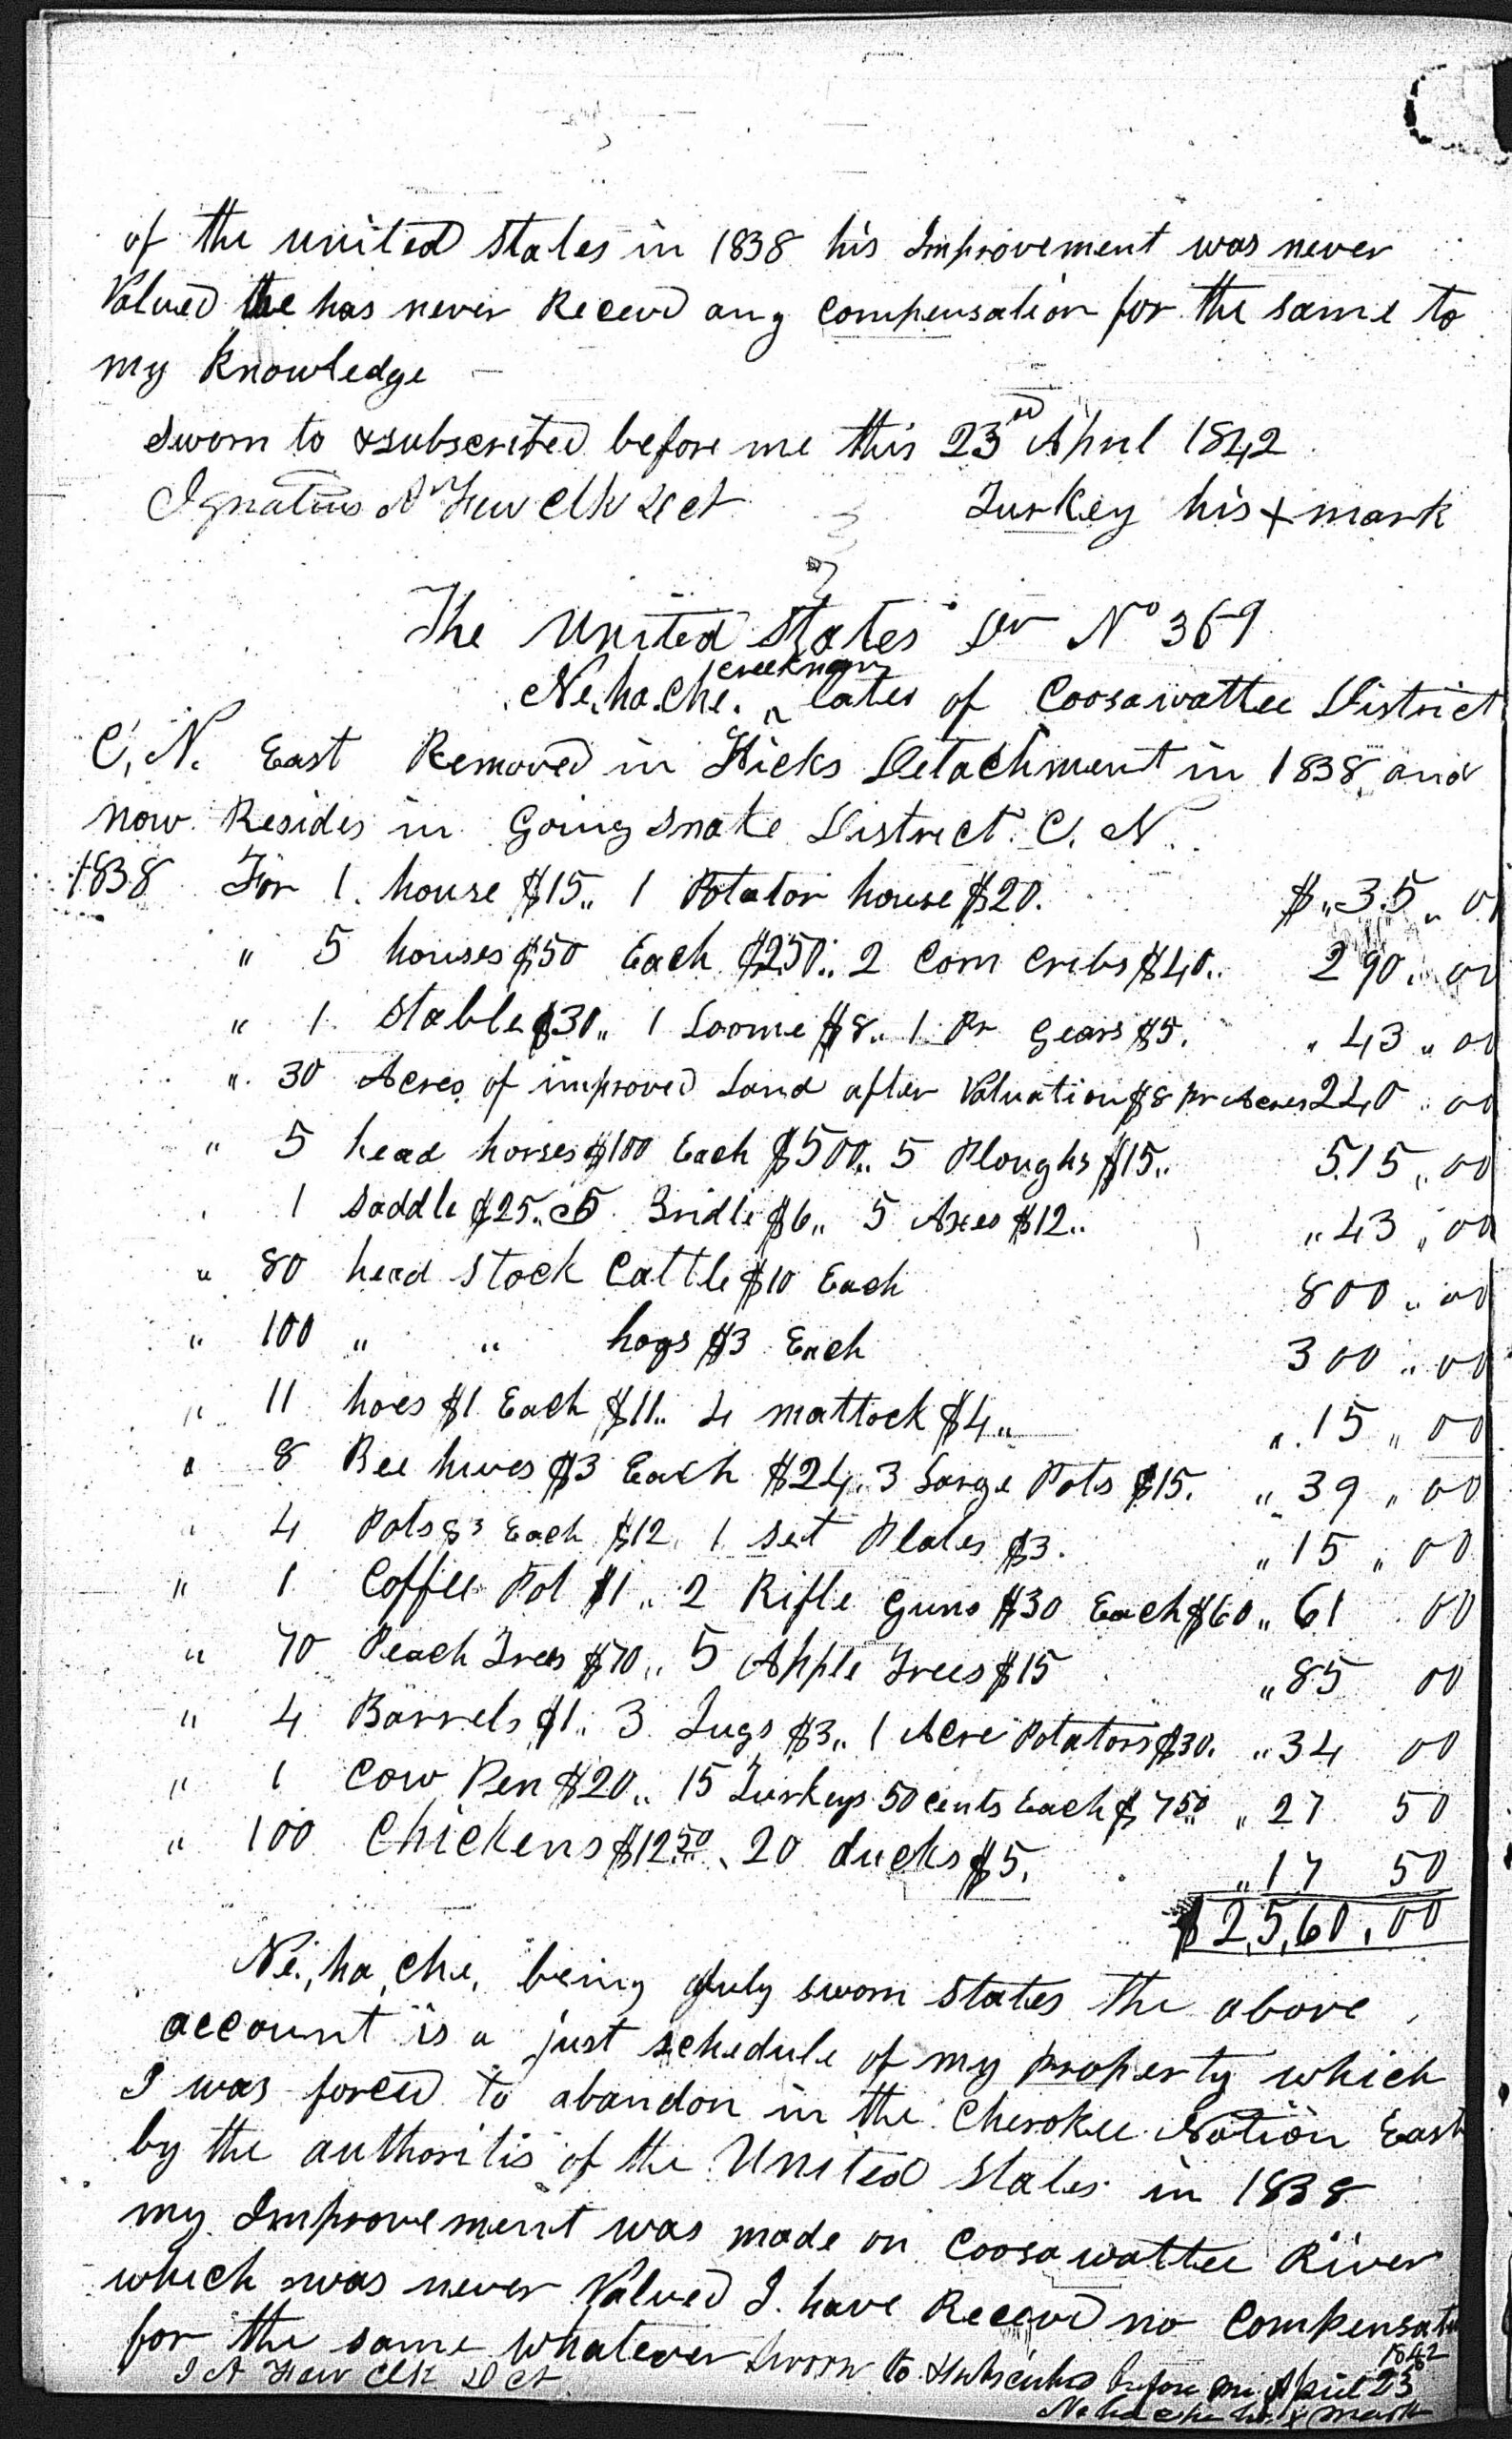 of the united States in 1838 his Improvement was never
Valued he has never Receivd any compensation for the same to
my knowledge
Sworn to & subscribed before me this 23rd April 1842
Ignatius A Few Clk Dct Turkey his x mark
The United States Dr No 369
creek name
Ne,ha,che. ^ lates of Coosawattee District
C, N. East Removed in Hicks Detachment in 1838 and
now Resides in Going Snake District C. N.
1838 For 1. house $15 " 1 Potatoe house $20. $ " 35 " 0
" 5 houses $50 Each $250 " 2 Corn Cribs $40 " 290 " 00
" 1 Stable $30 " 1 Loome $8 " 1 Pr Gears $5. " 43 " 00
" 30 Acres of improved Land after Valuation $8 pr Acres 240 " 00
" 5 head horses $100 Each $500 " 5 Ploughs $15 " 515 " 00
" 1 Saddle $25 " 5 Bridle $6 " 5 Axes $12 " " 43 " 00
" 80 head Stock Cattle $10 Each 800 " 00
" 100 " " hogs $3 Each 300 " 00
" 11 hoes $1 Each $11 " 4 mattock $4 " " 15 " 00
" 8 Bee hives $3 Each $24 " 3 Large Pots $15. " 39 " 00
" 4 Pots $3 Each $12 1 set Plates $3. " 15 " 00
" 1 Coffee Pot $1 " 2 Rifle Guns $30 Each $60 " 61 00
" 70 Peach Trees $70 " 5 Apple Trees $15 " 85 00
" 4 Barrels $1 " 3 Jugs $3 " 1 Acre Potatoes $30. " 34 00
" 1 Cow Pen $20 " 15 Turkeys 50 cents Each $7 50 " 27 50
" 100 Chickens $12 50 " 20 ducks $5. " 17 50
$2,560.00
Ne,ha,che, being duly sworn States the above
account is a just schedule of my property which
I was forced to abandon in the Cherokee Nation East
by the authoritis of the United States in 1838
my Improvement was made on Coosawattee River
which was never Valued I have Receivd no Compensat
for the same whatever Sworn to & subscribed before me April 23 1842
I A Few Clk Dct Nehache his x mark